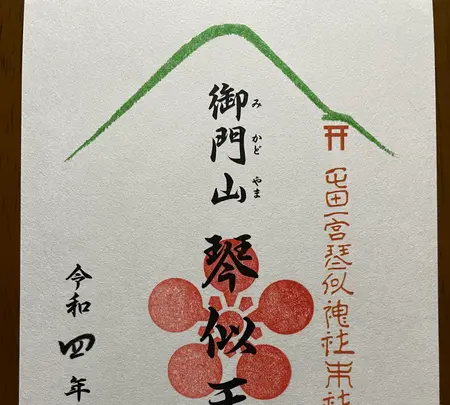 屯田一宮琴似神社末社
御門山
みかどやま
琴似
令和四年